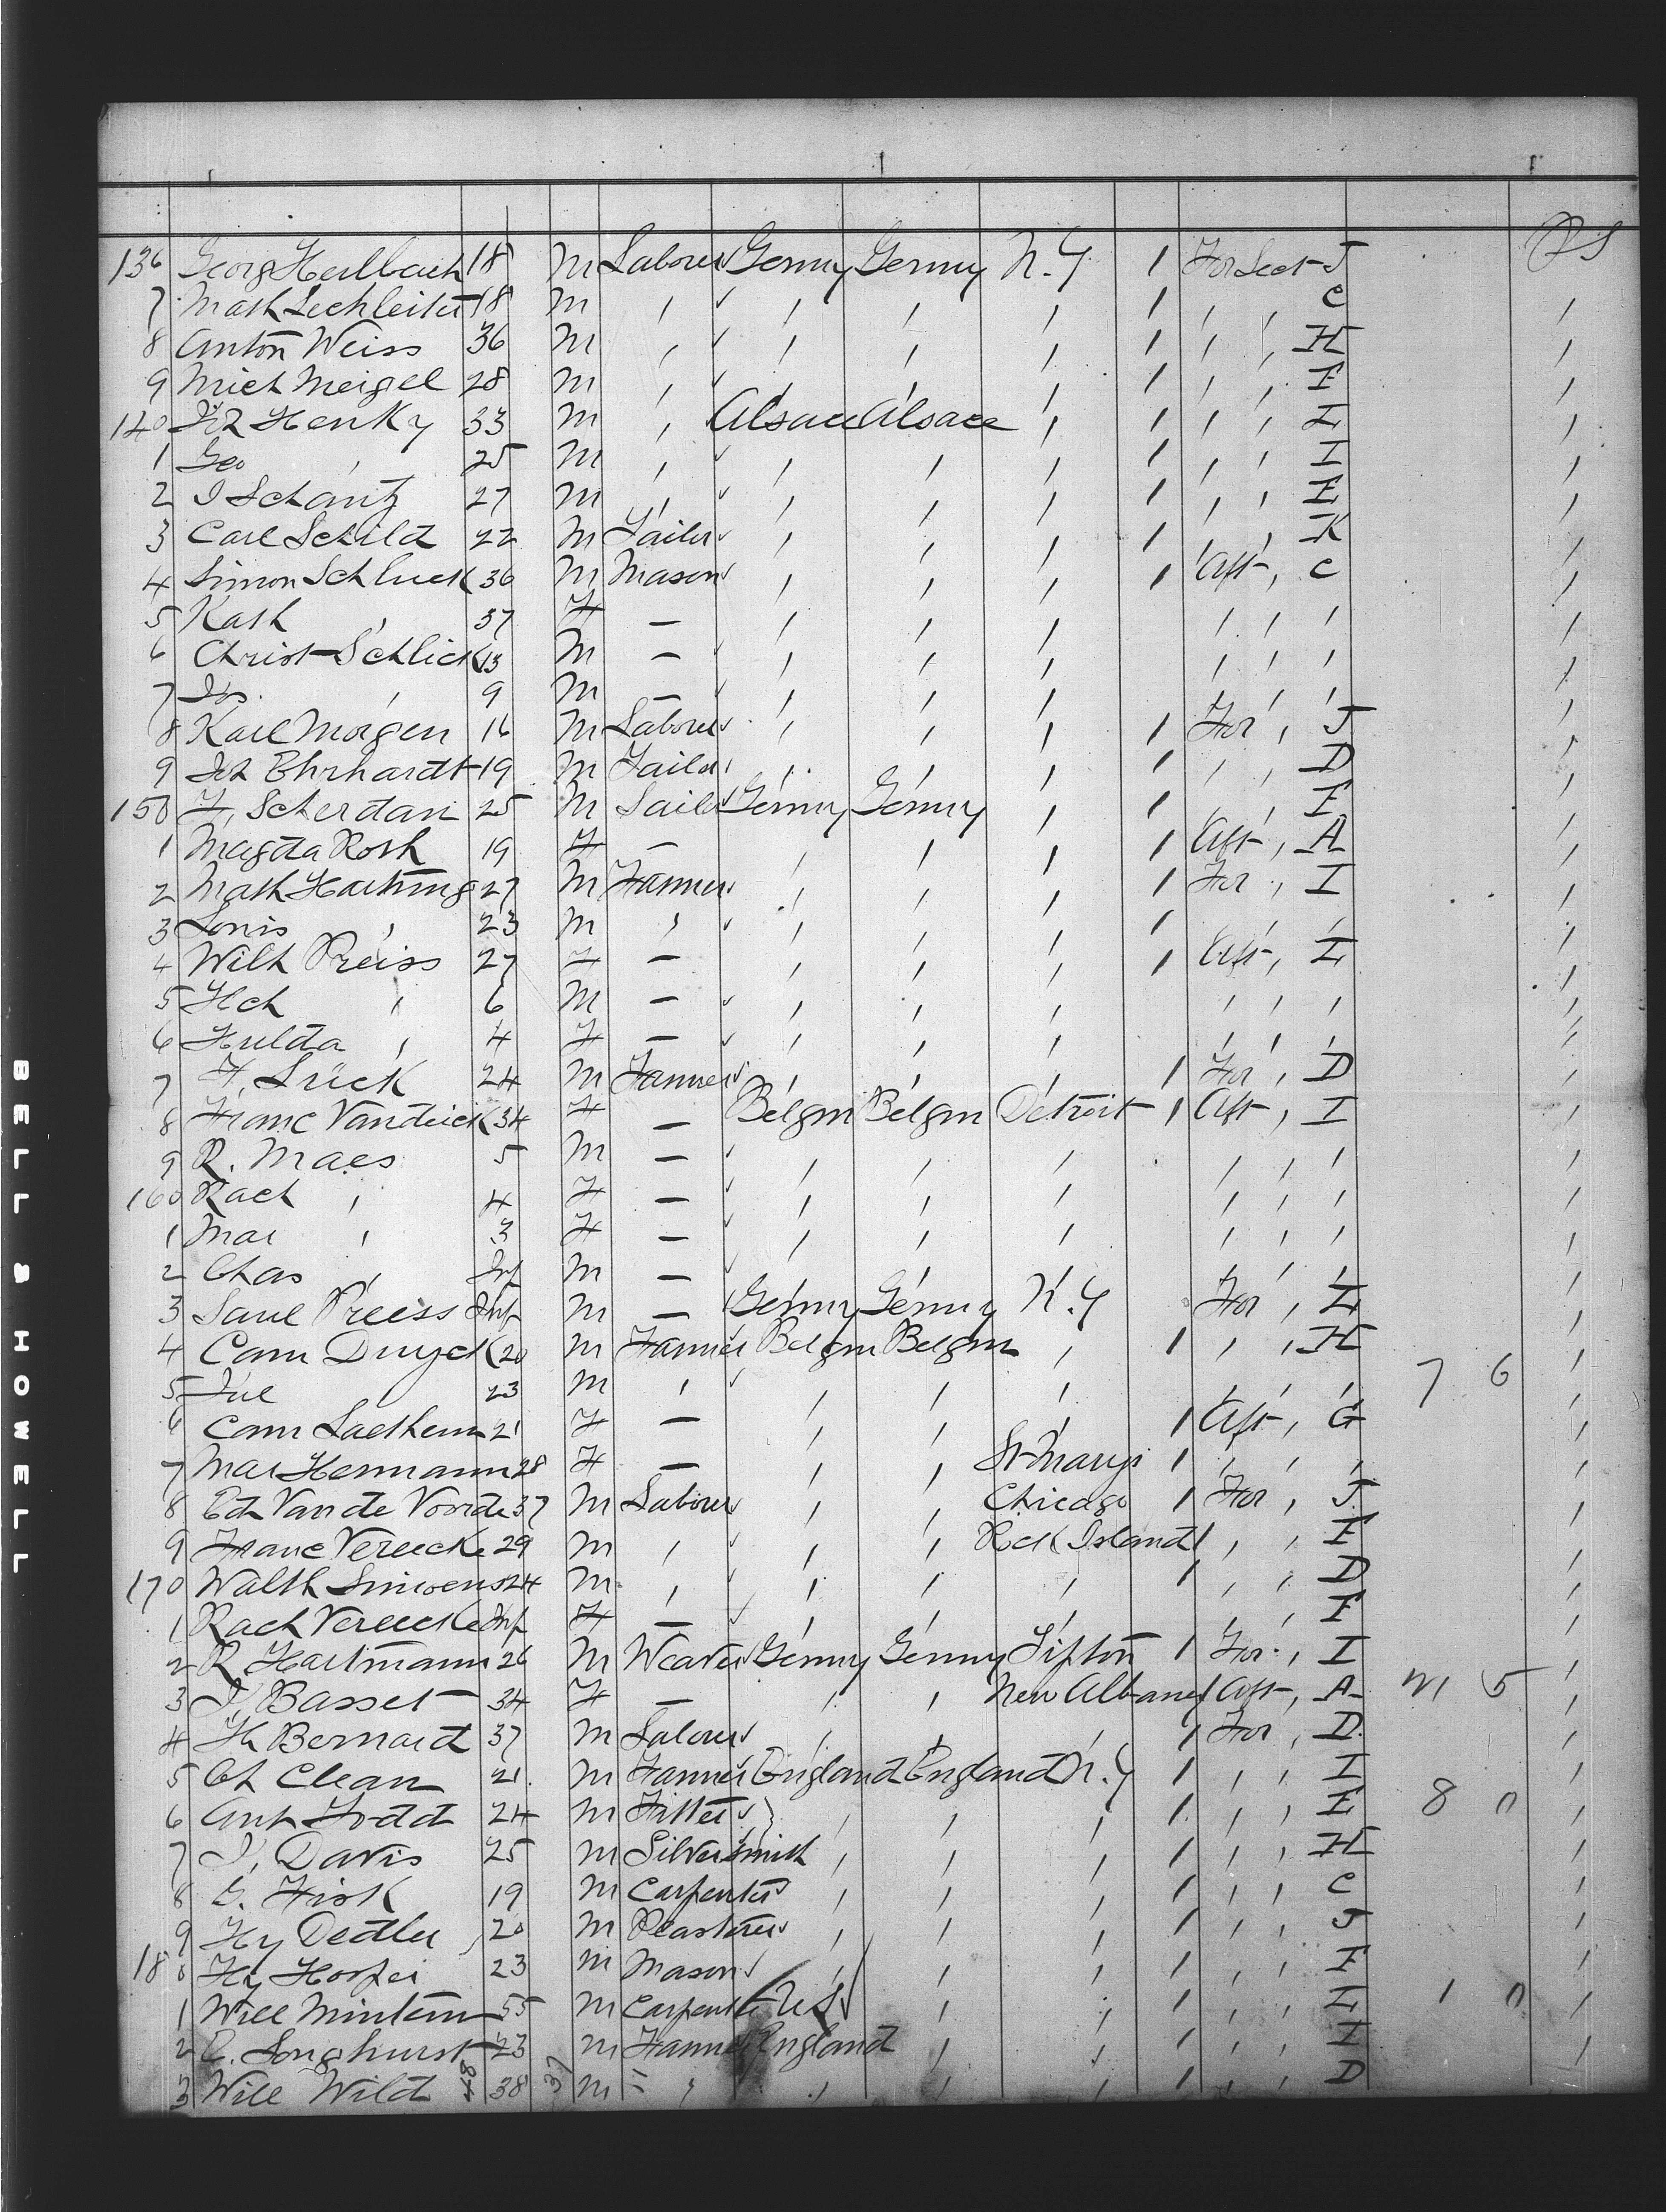 PS
136 Georg Heilbach 18 M Laborer Germy Germy N.Y 1 For Sect J
7 Math Lechleiter 18 M , , , , 1 , , C
8 Anton Weiss 36 M , , , , 1 , , H
9 Mich Meigel 28 M , , , , 1 , , E
140 Henky 33 M , Alsace Alsace , 1 , , I
1 Geo , 25 M , , , , 1 , , I
2 I Schantz 27 M , , , , 1 , , E
3 Carl Schild 22 M Tailor , , , 1 , , K
4 Simon Schluck 36 M Mason , , , 1 Aft , C
5 Kath , 37 F — , , , , , ,
6 Christ Schlick 13 M — , , , , , ,
7 Jos. , 9 M — , , , , , ,
8 Karl Morgen 16 M Laborer , , , 1 For , J
9 Ehrhardt 19 M Tailor , , , 1 , , D
150 F, Scherdan 25 M Sailor Germy Germy , 1 , , E
1 Magda Roth 19 F — , , , 1 Aft , A
2 Math Hartting 27 M Farmer , , , 1 For , I
3 Louis , 23 M , , , , 1 , , ,
4 Wilh Preiss 27 F — , , , 1 Aft , I
5 Hch , 6 M — , , , , , ,
6 Hulda , 4 F — , , , , , ,
7 F, Lück 24 M Farmer , , , 1 For , D
8 Franc Vandrick 34 F — Belgm Belgm Detroit 1 Aft , I
9 R. Maes 5 M — , , , , , ,
160 Rach , 4 F — , , , , , ,
1 Mar , 3 F — , , , , , ,
2 Chas , Inf M — , , , , , ,
3 Saul Preiss Inf M — Germy Germy N.Y For , I
4 Cam Duyck 20 M Farmer Belgm Belgm , 1 , , H
5 Jul 23 M , , , , , , , 7 6
6 Cam Laethem 21 F — , , , 1 Aft , G
7 Mar Hermann 28 F — , , St Marys 1 , , ,
8 Ed Van de Voorde 37 M Laborer , , Chicago 1 For , J
9 Franc Vereecke 29 M , , , Rck Island 1 , , E
170 Walth Simoens 24 M , , , , 1 , , D
1 Rach Vereecke Inf F — , , , , , E
2 R Hartmann 26 M Weaver Germy Germy Tipton 1 For , I
3 J, Basset 34 F — , , New Albany 1 Aft , A 5
4 Bernard 37 M Laborer , , , 1 For , D
5 Ch Clean 21 M Farmer England England N.Y 1 , , I
6 Todd 24 M Fitter , , , 1 , , E 8 0
7 J, Davis 25 M Silversmith , , , 1 , , H
8 G. Fisk 19 M Carpenter , , , 1 , , C
9 Hy Dedler 20 M Plasterer , , , 1 , , J
180 Hy 23 M Mason , , , 1 , , E
1 Will Mintern 55 M Carpenter U.S , , 1 , , I 1 0
2 C. Longhurst 23 M Farmer England , , 1 , , I
3 Will Wild 38 M , , , , 1 , , D
48 37
BELL & HOWELL